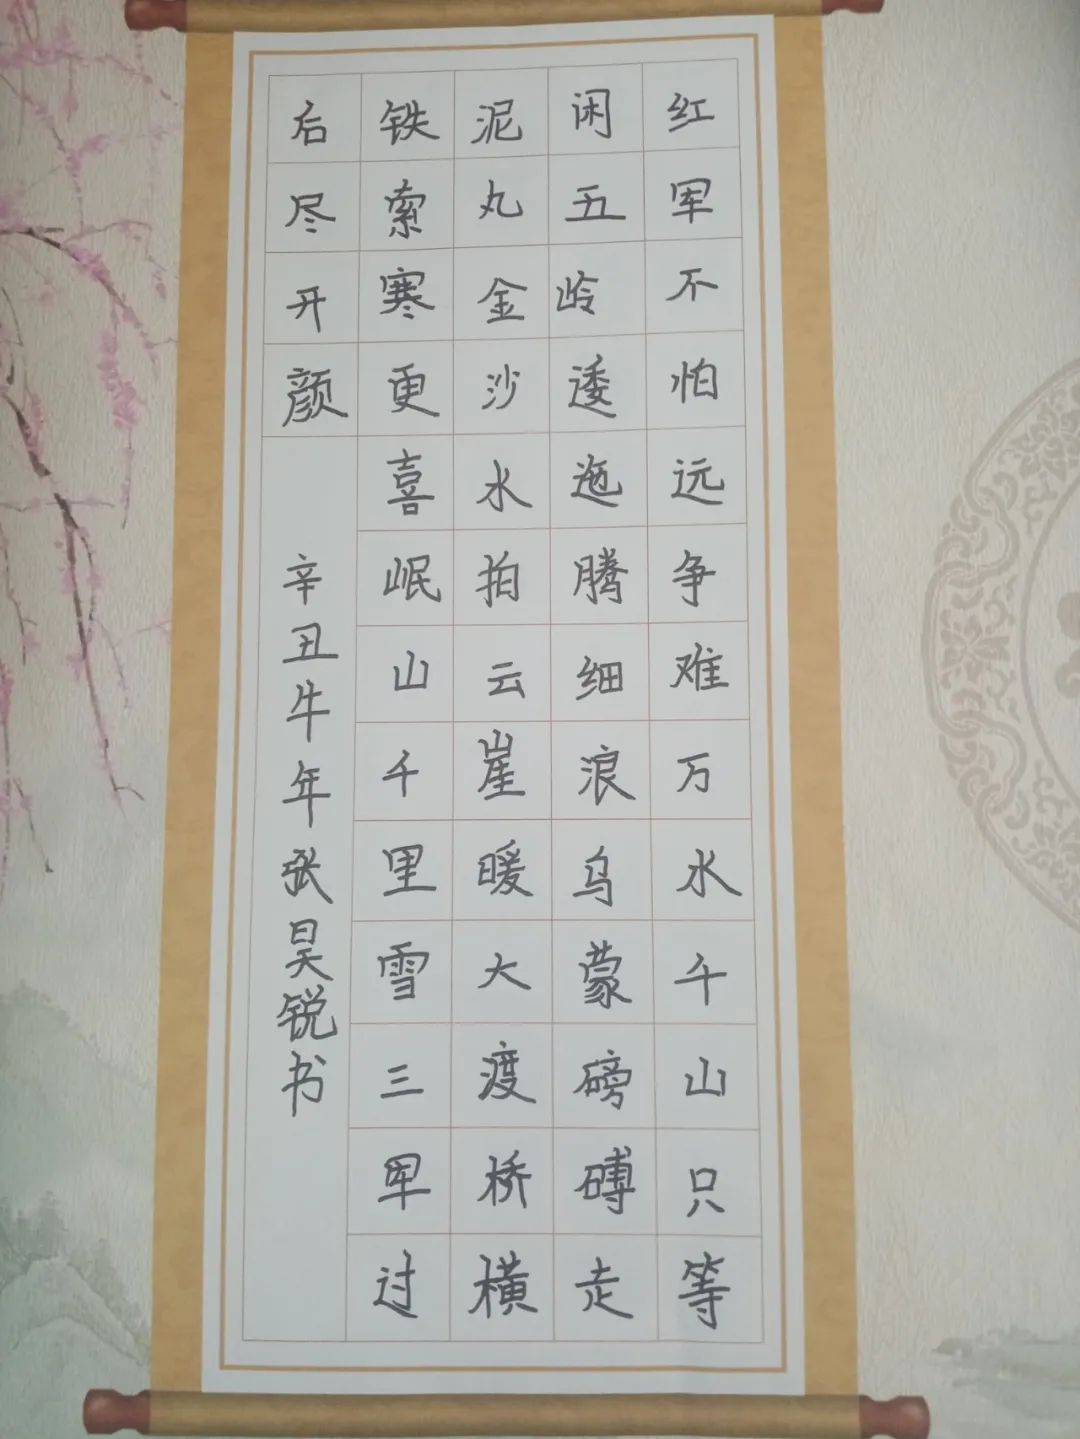 红军不怕远争难万水千山只等
闲五岭逶迤腾细浪乌蒙磅礴走
泥丸金沙水拍云崖暖大渡桥横
铁索寒更喜岷山千里雪三军过
后尽开颜
辛丑牛年张昊锐书